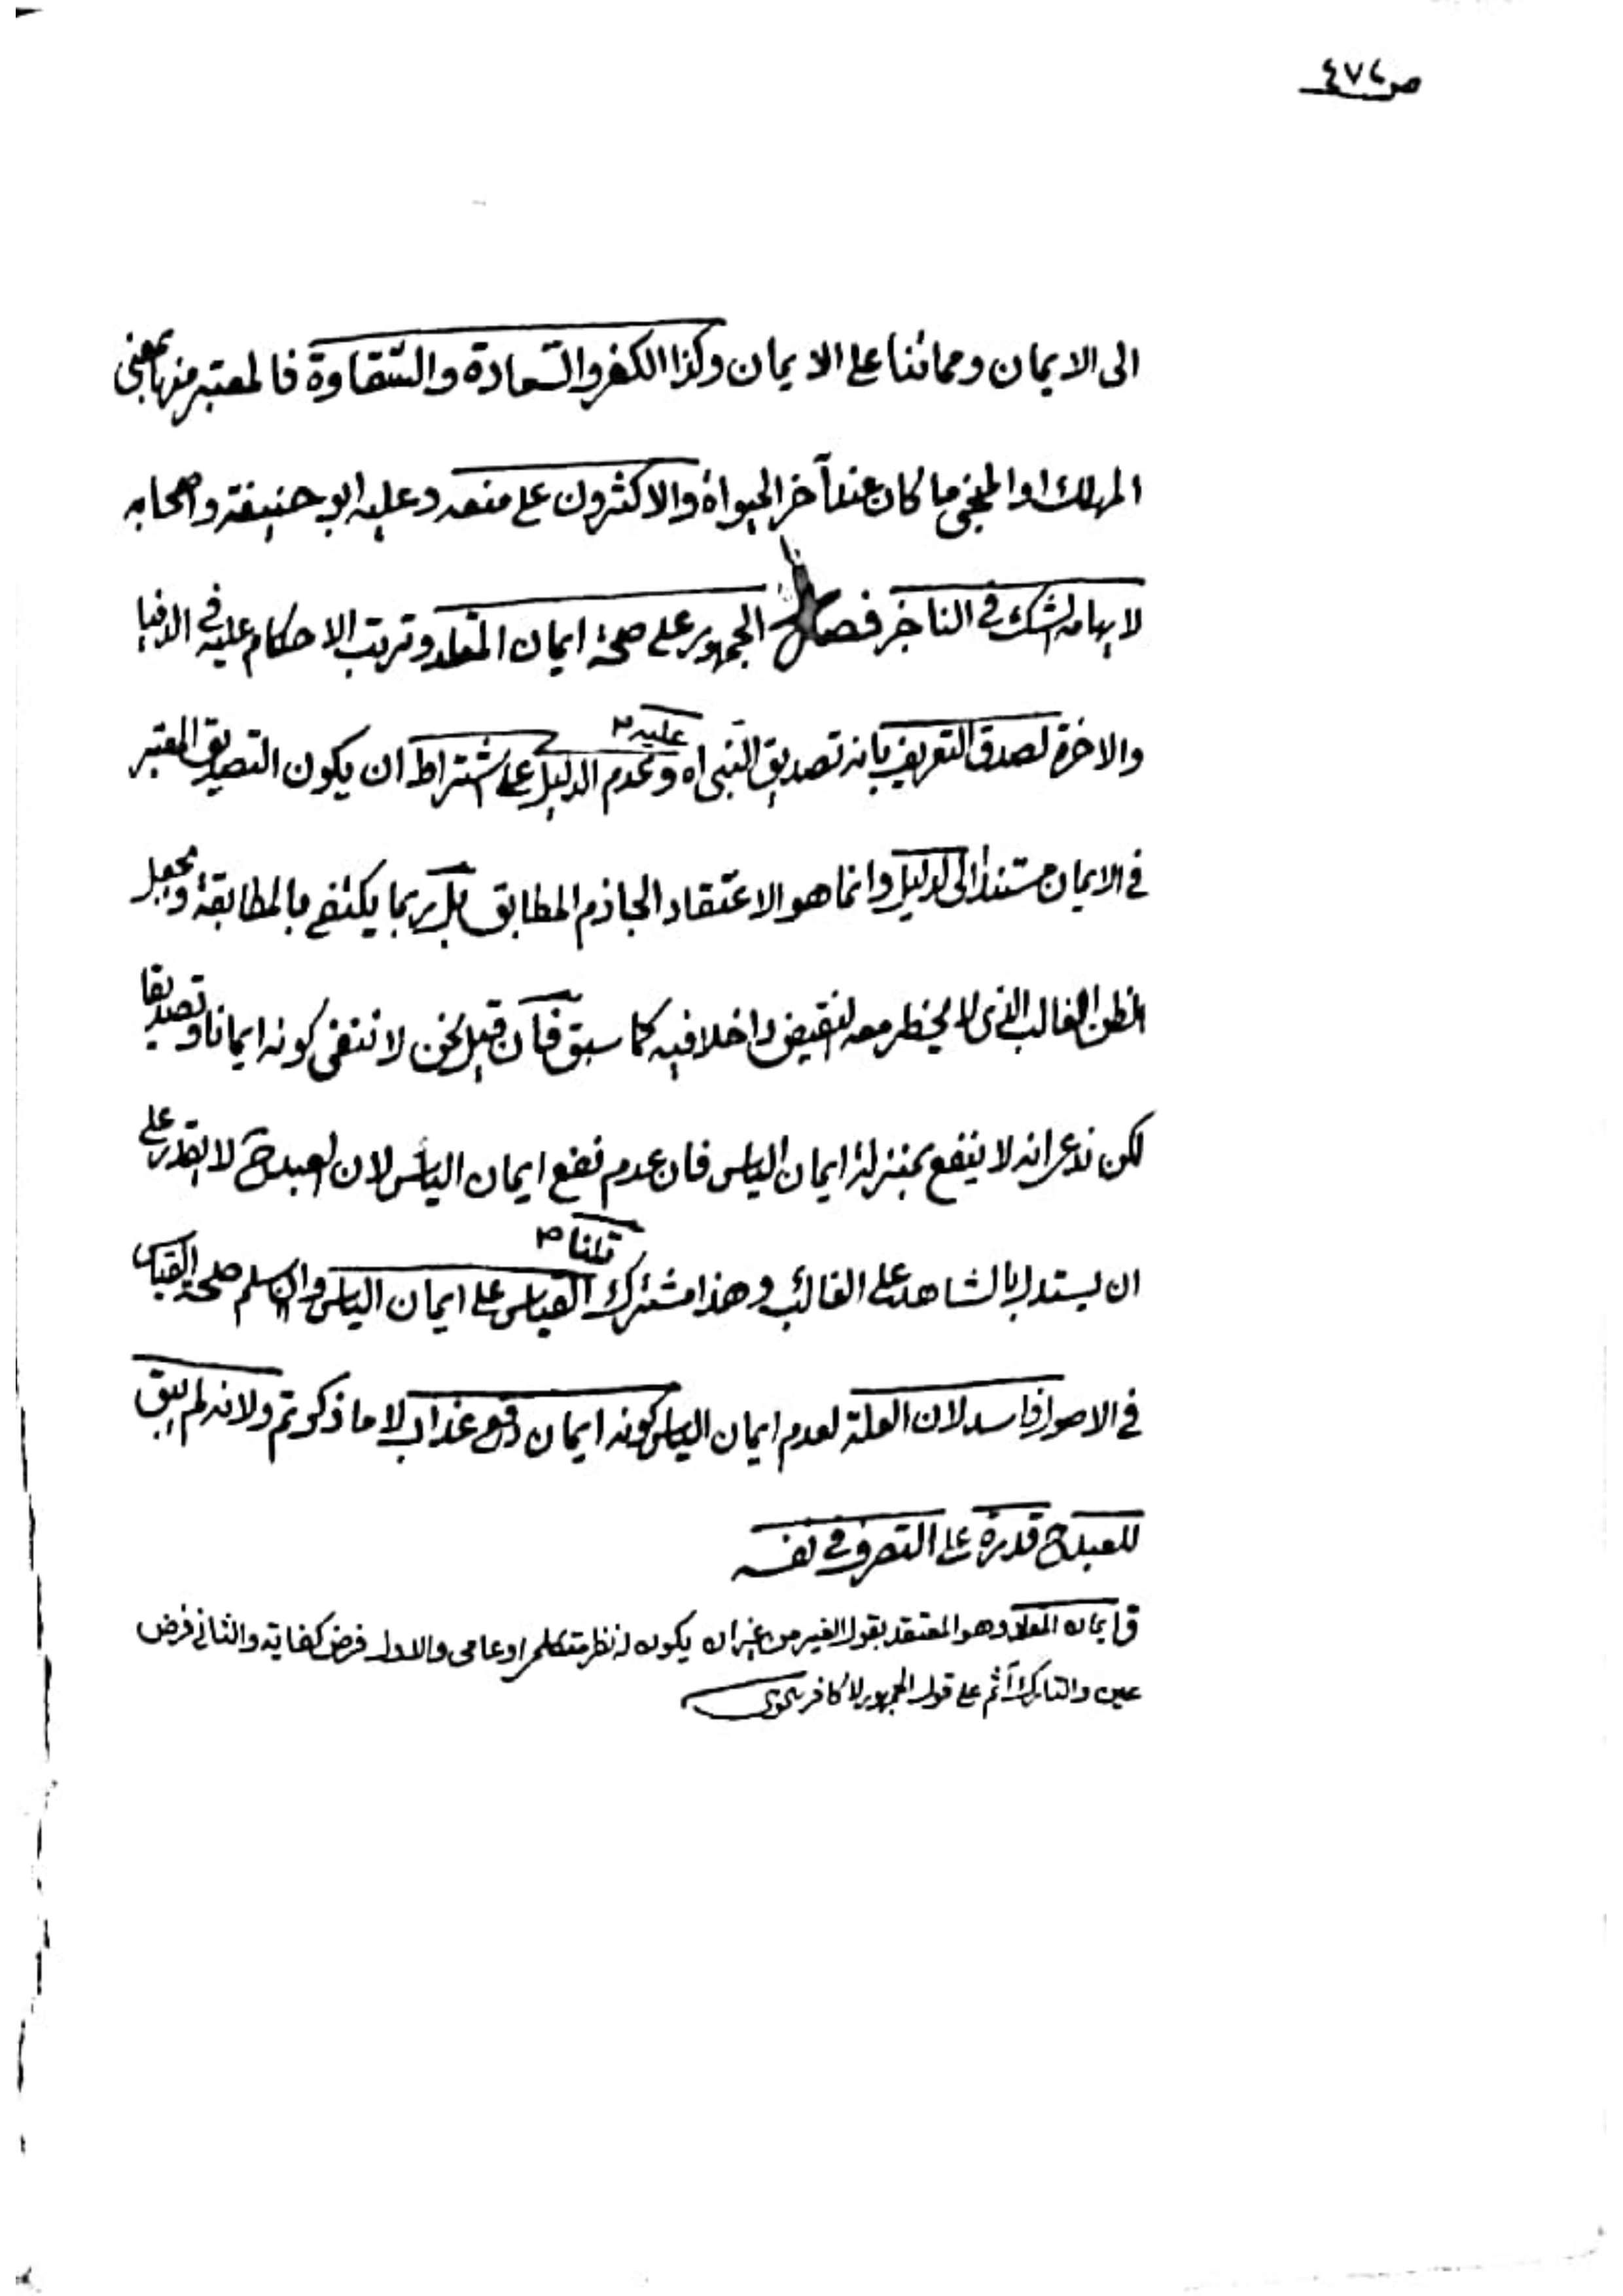 ص ٤٧٤
الى الايمان ومماتنا على الايمان وكذا الكفر والسّعادة والشّقاوة فالمعتبر منها بمعنى
المهلك او المنجى ما كان عند آخر الحيوة والاكثرون على منعه وعليه ابو حنيفة واصحابه
لايهامه الشك فى الناجز فصل الجمهور على صحة ايمان المقلد وترتب الاحكام عليه فى الدنيا
والاخرة لصدق التعريف بانه تصديق النّبى اه وعدم الدليل على اشتراط ان يكون التصديق المعتبر
عليه ٢
فى الايمان مستندا الى الدليل وانما هو الاعتقاد الجاذم المطابق بل ربما يكتفى بالمطابقة ويجعل
الظن الغالب الذى لا يخطر معه النقيض داخلا فيه كما سبق فان قيل نحن لا ننفى كونه ايمانا وتصديقا
لكن ندعى انه لا ينفع بمنزلة ايمان الياس فان عدم نفع ايمان اليأس لان العبد ح لا يقدر على
ان يستدل بالشاهد على الغائب وهذا مشترك القياس على ايمان الياس وان سلم صحة القياس
قلنا ٣
فى الاصول فاسد لان العلة لعدم ايمان الياس كونه ايمان دفع عذاب لا ما ذكرتم ولانه لم يبق
للعبد ح قدرة على التصرف فى نفسه
ق ايمان المقلد وهو المعتقد بقول الغير من غير ان يكون له نظر متكلم او عامى والاول فرض كفاية والثانى فرض
عين والتارك آثم على قول الجمهور لا كافر